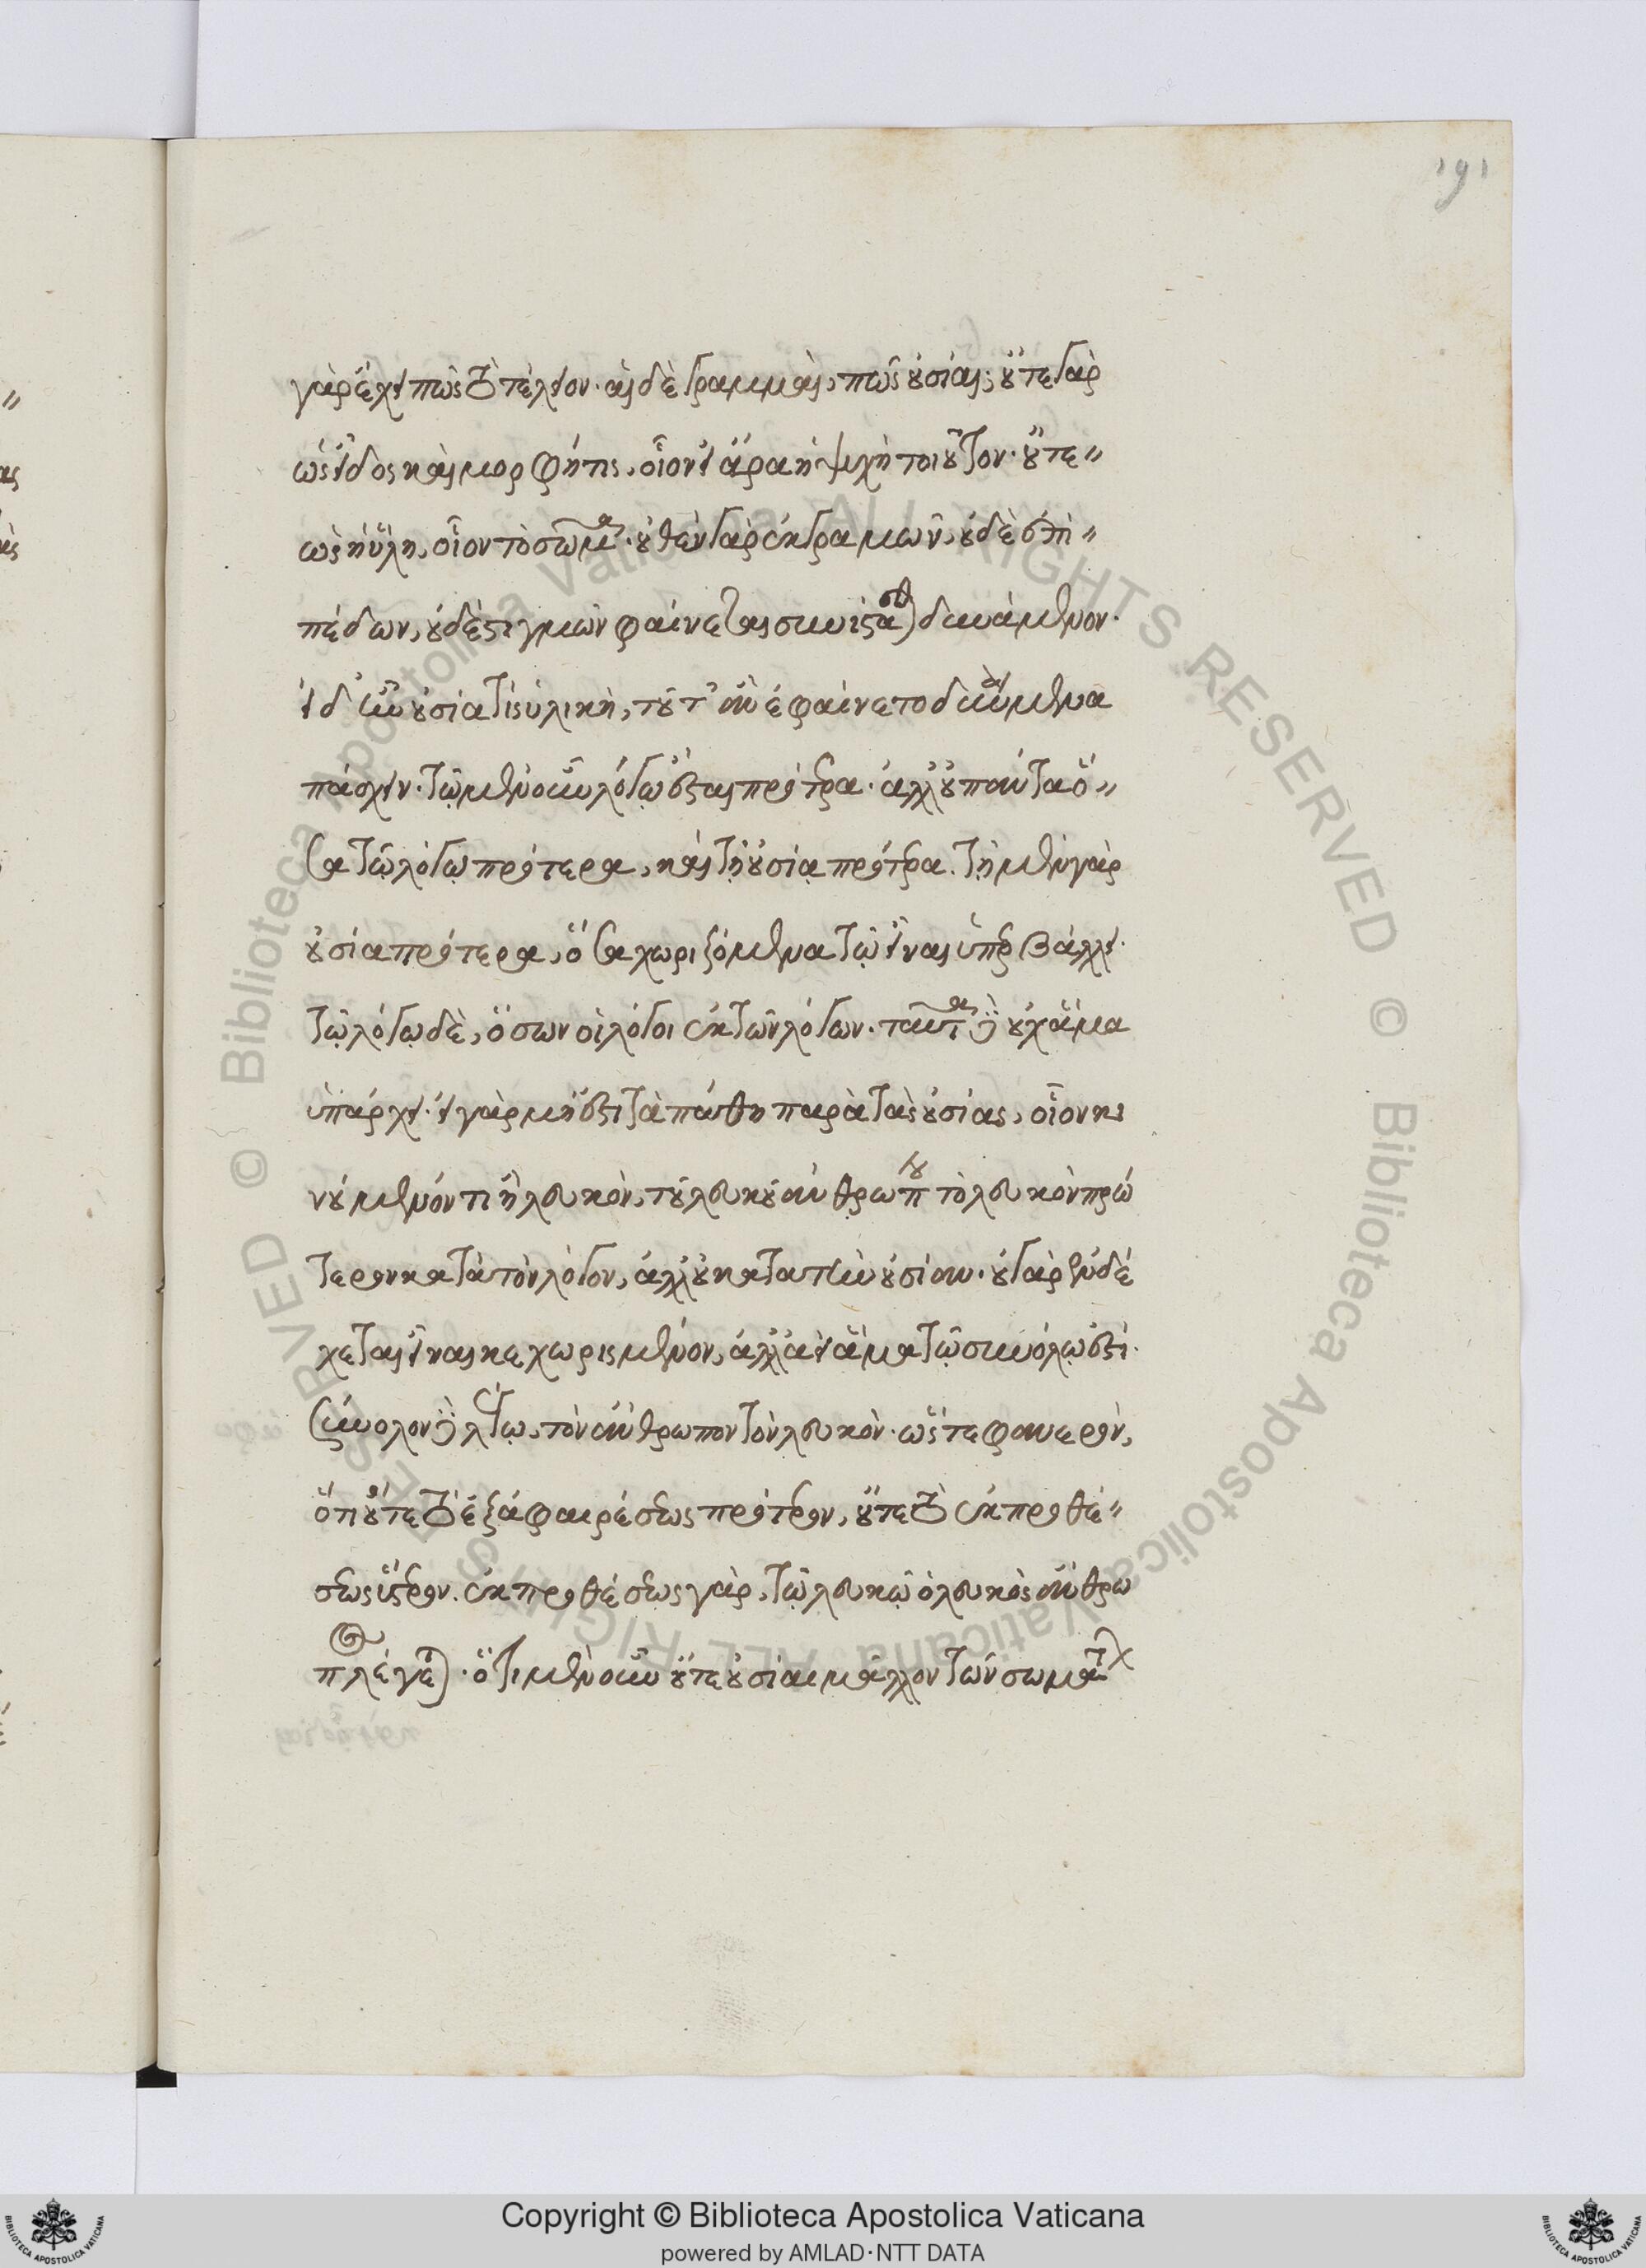 191
γὰρ ἔχει πῶς καὶ τέλειον. αἱ δὲ γραμμαὶ, πῶς οὐσίαι; οὔτε γὰρ
ὡς εἶδος καὶ μορφή τις, οἷον εἰ ἄρα ἡ ψυχὴ τοιοῦτον. οὔτε
ὡς ἡ ὕλη, οἷον τὸ σῶμα. οὐθὲν γὰρ ἐκ γραμμῶν, οὐδὲ ἐπι
πέδων, οὐδὲ στιγμῶν φαίνεται συνίστασθαι δυνάμενον.
εἰ δ' ἦν οὐσία τὶς ὑλικὴ, τοῦτ' ἂν ἐφαίνετο δυνάμενα
πάσχειν. τῷ μὲν οὖν λόγῳ ἔσται πρότερα. ἀλλ' οὐ πάντα ὅ
σα τῷ λόγῳ πρότερα, καὶ τῇ οὐσίᾳ πρότερα. τῇ μὲν γὰρ
οὐσίᾳ πρότερα, ὅσα χωριζόμενα τῷ εἶναι ὑπερβάλλει.
τῷ λόγῳ δὲ, ὅσων οἱ λόγοι ἐκ τῶν λόγων. ταῦτα δὲ οὐχ ἅμα
ὑπάρχει. εἰ γὰρ μή ἐστι τὰ πάθη παρὰ τὰς οὐσίας, οἷον κι
νούμενόν τι ἢ λευκὸν, τοῦ λευκοῦ ἀνθρώπου τὸ λευκὸν πρώ
τερον κατὰ τὸν λόγον, ἀλλ' οὐ κατὰ τὴν οὐσίαν. οὐ γὰρ ἐνδέ
χεται εἶναι κεχωρισμένον, ἀλλ' ἀεὶ ἅμα τῷ συνόλῳ ἐστί.
σύνολον δὲ λέγω, τὸν ἄνθρωπον τὸν λευκὸν. ὥστε φανερὸν,
ὅτι οὔτε τὸ ἐξ ἀφαιρέσεως πρότερον, οὔτε τὸ ἐκ προσθέ
σεως ὕστερον. ἐκ προσθέσεως γὰρ, τῷ λευκῷ ὁ λευκὸς ἄνθρω
πος λέγεται. ὅτι μὲν οὖν οὔτε οὐσίαι μᾶλλον τῶν σωμάτων
Copyright © Biblioteca Apostolica Vaticana
powered by AMLAD·NTT DATA